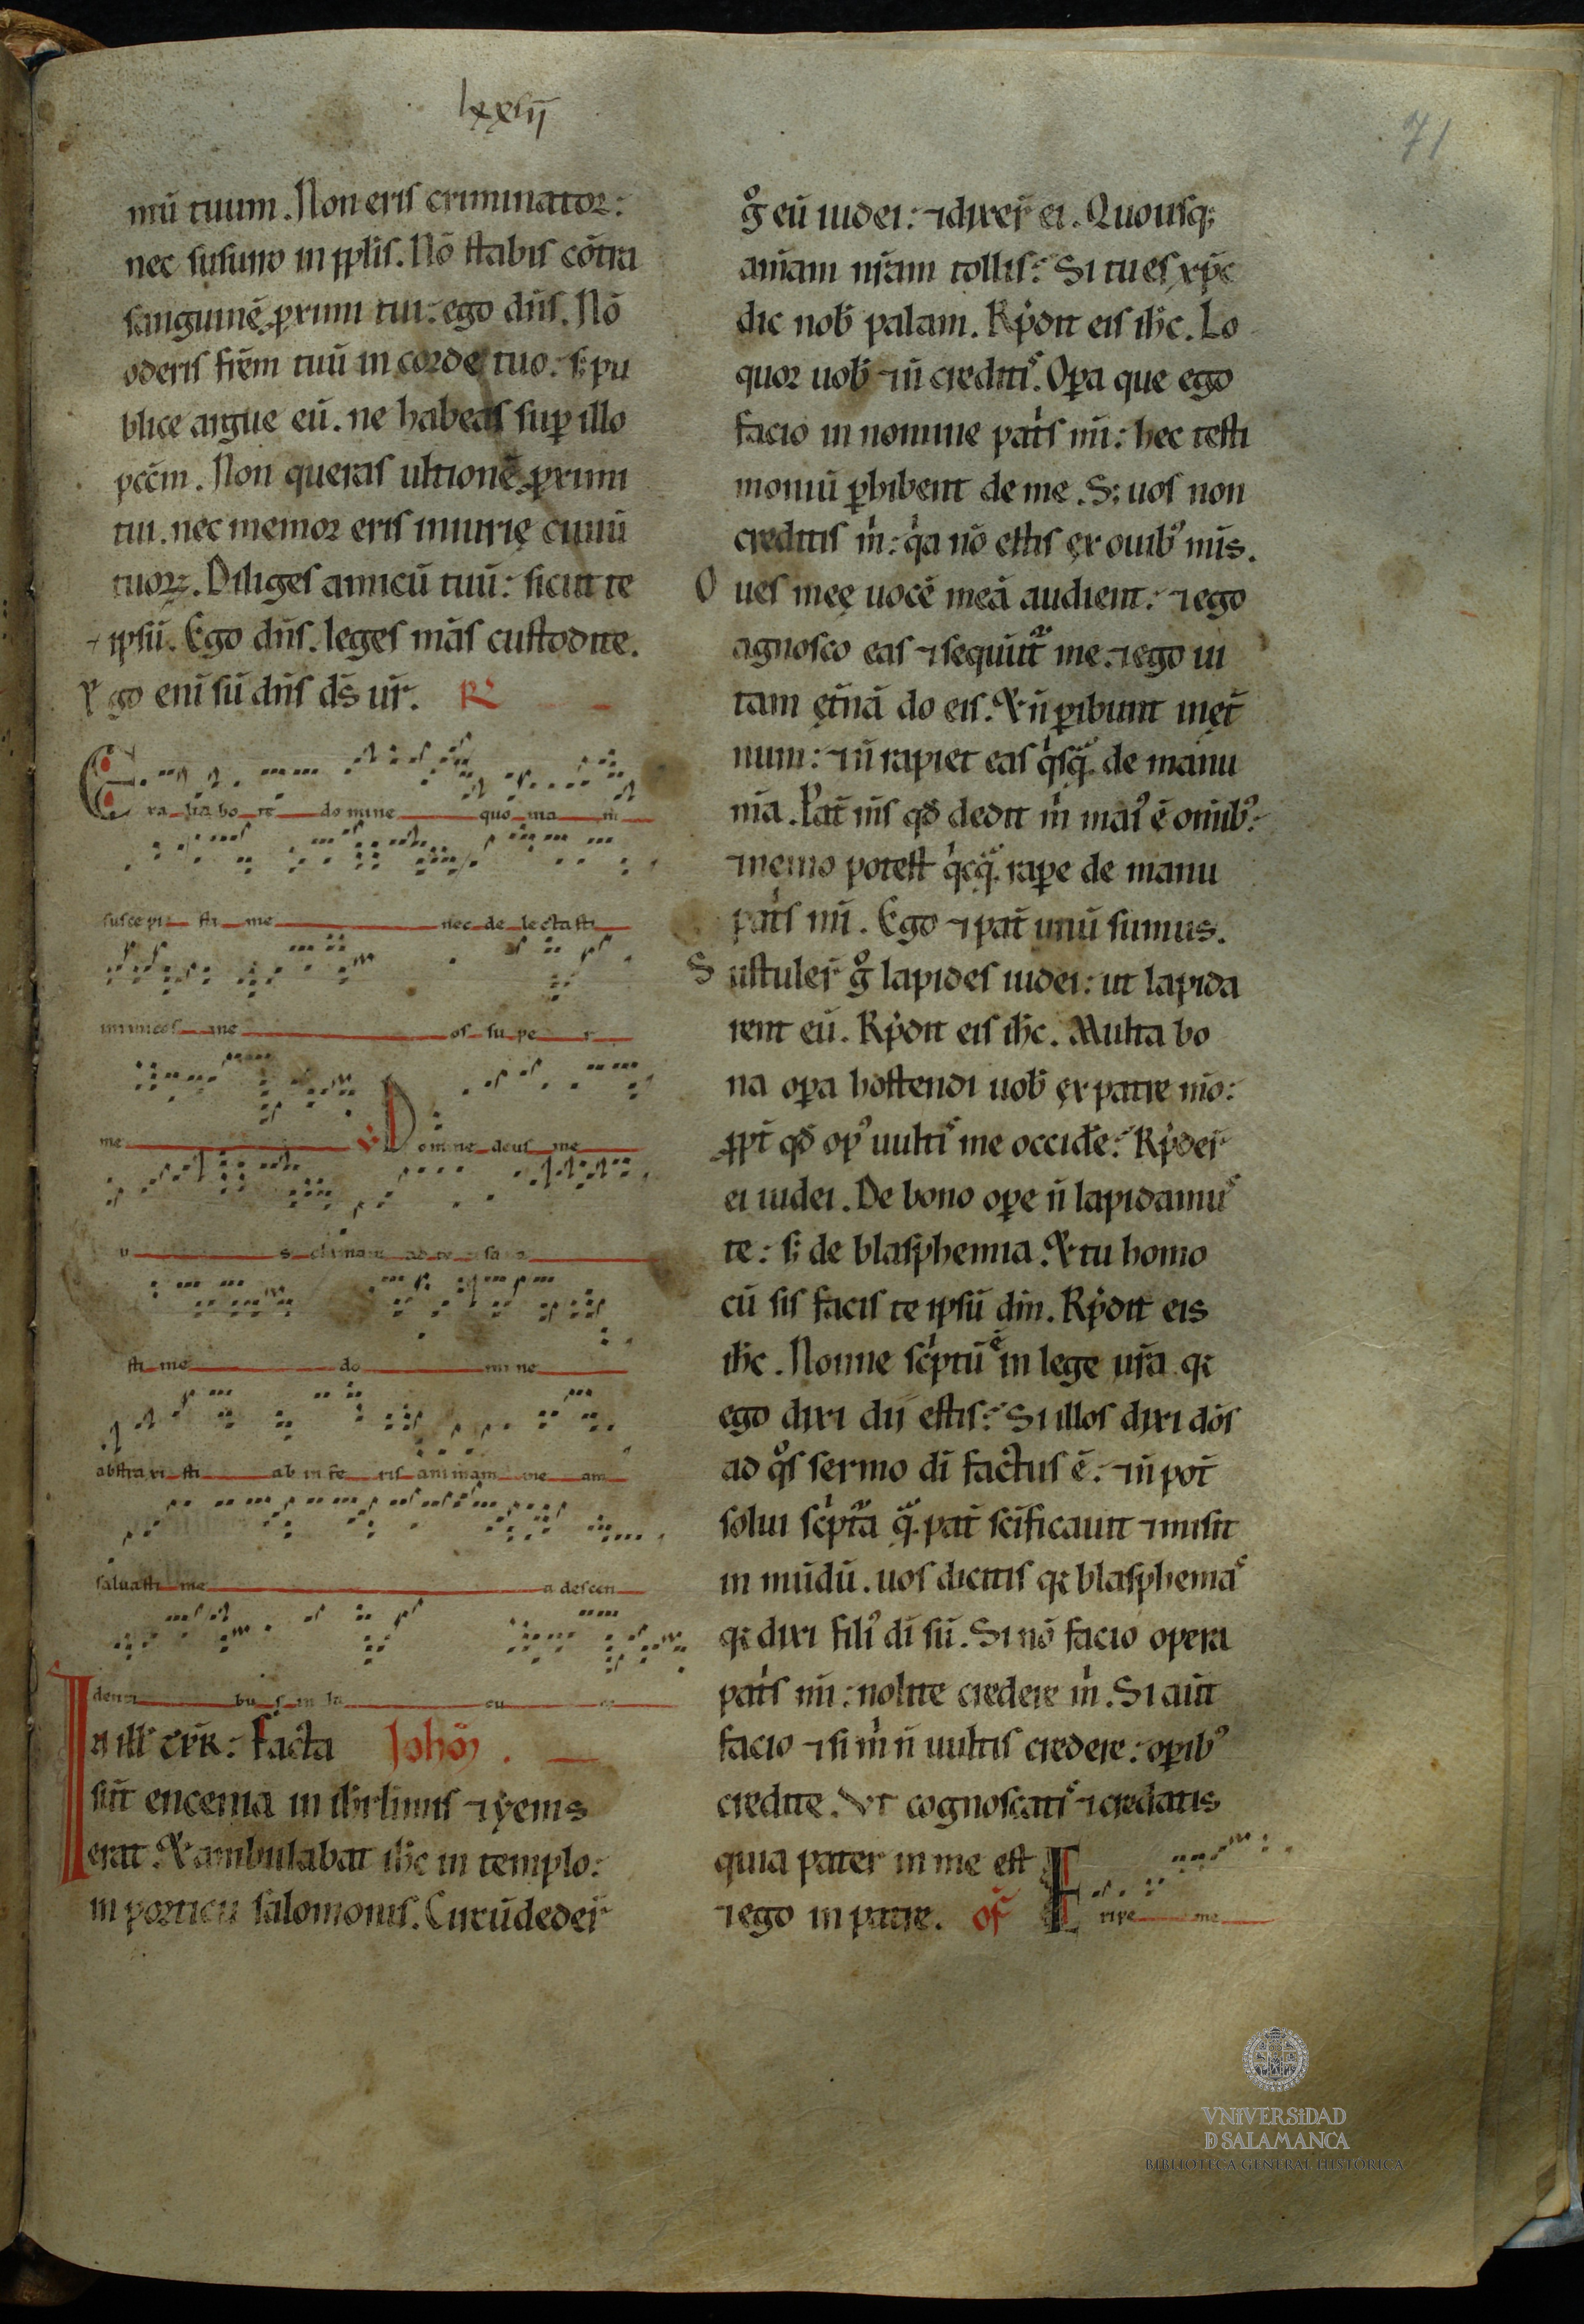 lxxiij
71
mū tuum. Non eris criminator:
nec susurro in pp̄lis. Nō stabis cōtra
sanguinē ꝓximi tui: ego dn̄s. Nō
oderis fr̄em tuū in corde tuo. s; pu
blice argue eū. ne habeas sup̱ illo
pcc̄m. Non queras ultionē ꝓximi
tui. nec memor eris iniurię ciuiū
tuoꝝ. Diliges amicū tuū: sicut te
ipsū. Ego dn̄s. leges mās custodite.
Ego eni sū dn̄s ds̄ ur̄. R
Exaltabo te domine quoniam
suscepisti me nec delectasti
inimicos me os super
me V Domine deus me
us clamaui ad te sana
sti me domine
abstraxisti ab inferis animam meam
saluasti me a descen
dentibus in lacu
In ill̄ tp̄r: Facta Johō
sūt encenia in ih̄rlimis ⁊ yems
erat. Et ambulabat ih̄c in templo:
in porticu salomonis. Circūdeder̄
gͦ eū iudei: ⁊ dixer̄ ei. Quousq;
anīam nr̄am tollis: Si tu es xp̄c
dic nob̄ palam. Rp̄dit eis ih̄c. Lo
quor uob̄ ⁊ n̄ creditis. Op̱a que ego
facio in nomine patis mī: hec testi
moniū p̱hibent de me. S; uos non
creditis m: qa nō estis ex ouibꝰ mīs.
Oues meę uocē meā audient: ⁊ ego
agnosco eas ⁊ sequūt me. ⁊ ego ui
tam ęt̄nā do eis. Et n̄ p̱ibunt inęt̄
num: ⁊ n̄ rapiet eas qisqā. de manu
mīa. Pat̄ mīs qd̄ dedit m maiꝰ ē om̄ibꝰ:
⁊ nemo potest qicqā. rap̱e de manu
patis mī. Ego ⁊ pat̄ unū sumus.
Sustuler̄ gͦ lapides iudei: ut lapida
rent eū. Rp̄dit eis ih̄c. Multa bo
na op̱a hostendi uob̄ ex patre mō:
ꝓpt̄ qd̄ opꝰ uultis me occide: Rp̄der̄
ei iudei. De bono op̱e n̄ lapidamus
te: s; de blasphemia. Et tu homo
cū sis facis te ipsū dm̄. Rp̄dit eis
ih̄c. Nonne scptū ē in lege ur̄a q
ego dixi dii estis: Si illos dixi dōs
ad qͦs sermo dī factus ē: ⁊ n̄ pot̄
solui scptā qē. pat̄ sc̄ificauit ⁊ misit
in mūdū. uos dicitis q blasphemas
q dixi filiꝰ dī sū. Si nō facio opera
patis mī: nolite credere m. Si aūt
facio ⁊ si m n̄ uultis credere: op̱ibꝰ
credite. Vt cognoscatis ⁊ credatis
quia pater in me est
⁊ ego in patre. of̄ Eripe me
VNIVERSIDAD
D SALAMANCA
BIBLIOTECA GENERAL HISTÓRICA